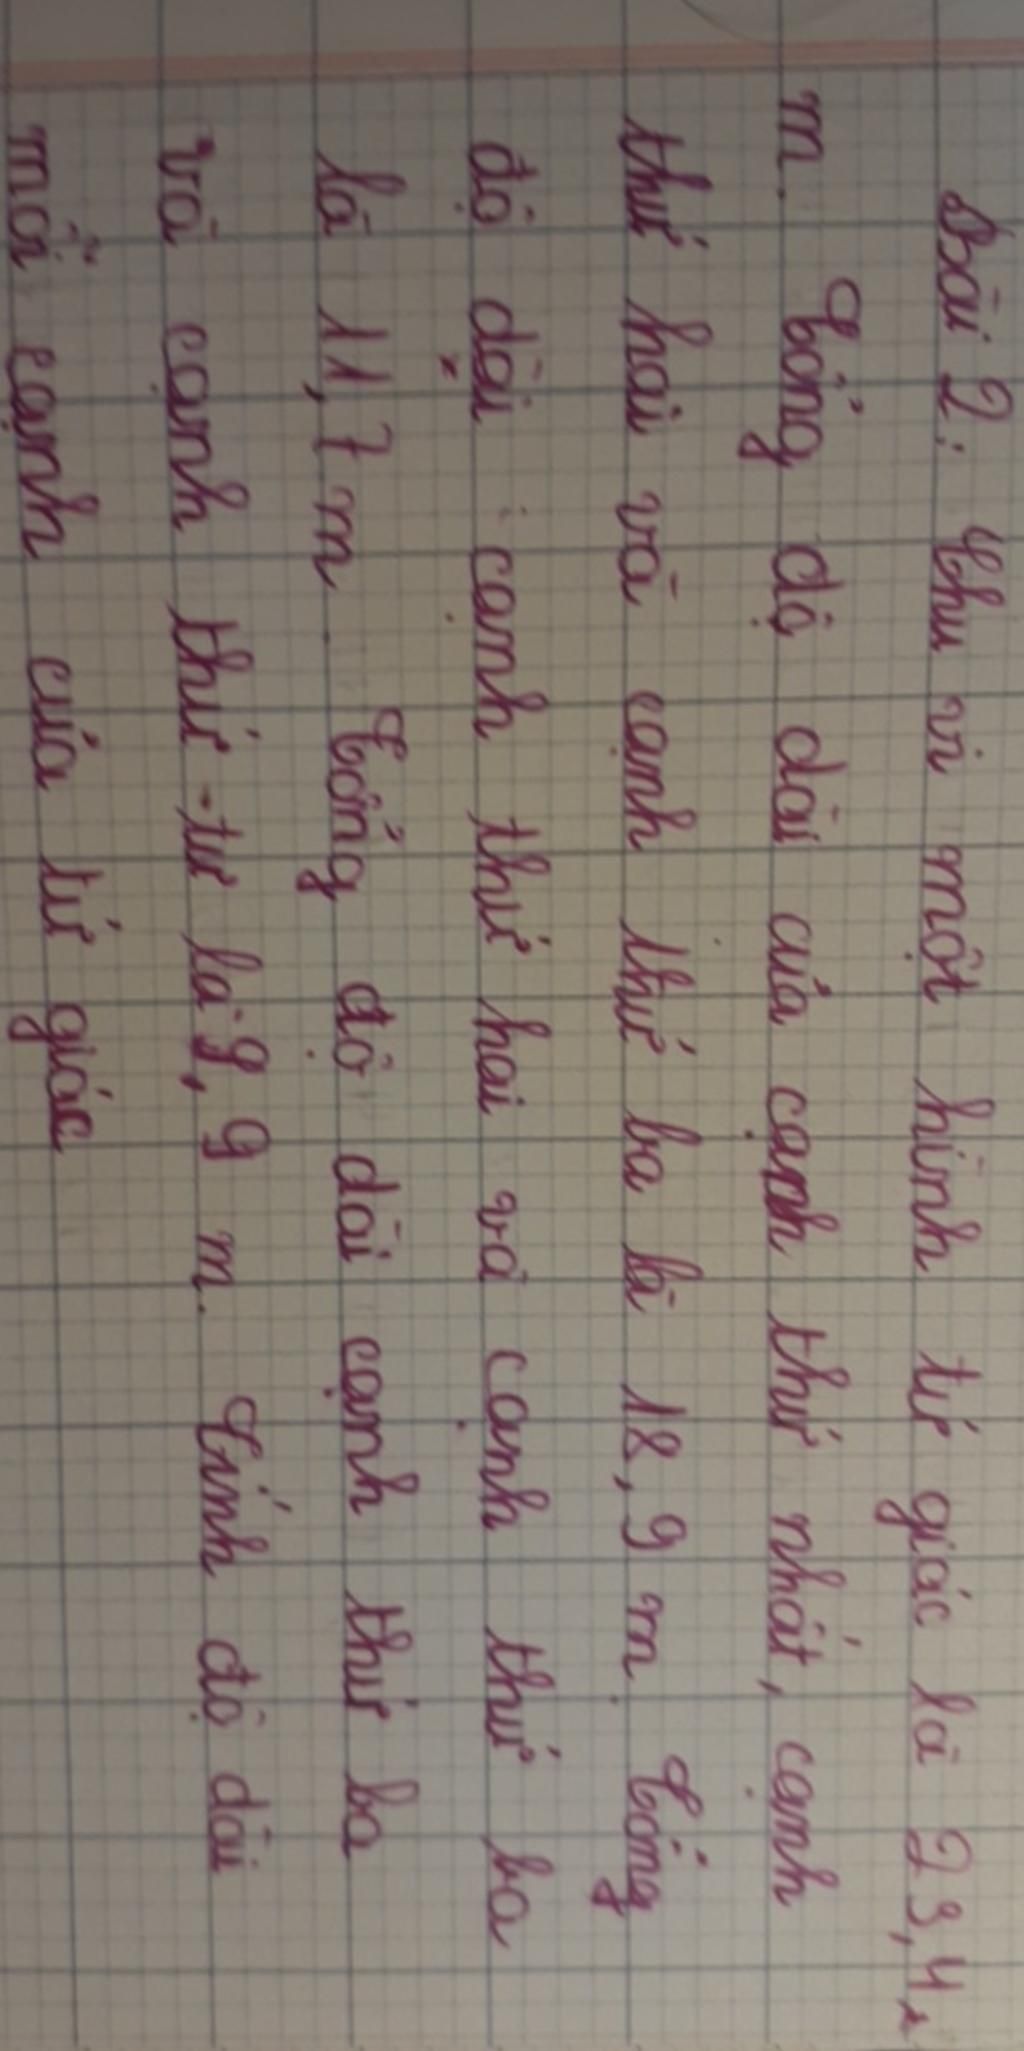 Bài 2: Chu vi một hình tứ giác là 23,4
m. Tổng độ dài của cạnh thứ nhất, cạnh
thứ hai và cạnh thứ ba là 18,9 m. Tổng
độ dài cạnh thứ hai và cạnh thứ ba
là 11,7 m. Tổng độ dài cạnh thứ ba
và cạnh thứ tư là 9,9 m. Tính độ dài
mỗi cạnh của tứ giác